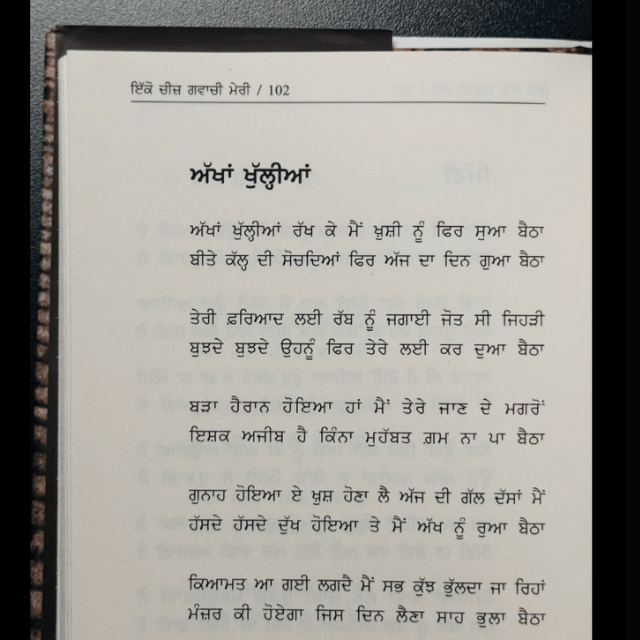 ਇੱਕੋ ਚੀਜ਼ ਗਵਾਚੀ ਮੇਰੀ / 102
ਅੱਖਾਂ ਖੁੱਲ੍ਹੀਆਂ
ਅੱਖਾਂ ਖੁੱਲ੍ਹੀਆਂ ਰੱਖ ਕੇ ਮੈਂ ਖ਼ੁਸ਼ੀ ਨੂੰ ਫਿਰ ਸੁਆ ਬੈਠਾ
ਬੀਤੇ ਕੱਲ੍ਹ ਦੀ ਸੋਚਦਿਆਂ ਫਿਰ ਅੱਜ ਦਾ ਦਿਨ ਗੁਆ ਬੈਠਾ
ਤੇਰੀ ਫ਼ਰਿਆਦ ਲਈ ਰੱਬ ਨੂੰ ਜਗਾਈ ਜੋਤ ਸੀ ਜਿਹੜੀ
ਬੁਝਦੇ ਬੁਝਦੇ ਉਹਨੂੰ ਫਿਰ ਤੇਰੇ ਲਈ ਕਰ ਦੁਆ ਬੈਠਾ
ਬੜਾ ਹੈਰਾਨ ਹੋਇਆ ਹਾਂ ਮੈਂ ਤੇਰੇ ਜਾਣ ਦੇ ਮਗਰੋਂ
ਇਸ਼ਕ ਅਜੀਬ ਹੈ ਕਿੰਨਾ ਮੁਹੱਬਤ ਗ਼ਮ ਨਾ ਪਾ ਬੈਠਾ
ਗੁਨਾਹ ਹੋਇਆ ਏ ਖ਼ੁਸ਼ ਹੋਣਾ ਲੈ ਅੱਜ ਦੀ ਗੱਲ ਦੱਸਾਂ ਮੈਂ
ਹੱਸਦੇ ਹੱਸਦੇ ਦੁੱਖ ਹੋਇਆ ਤੇ ਮੈਂ ਅੱਖ ਨੂੰ ਰੁਆ ਬੈਠਾ
ਕਿਆਮਤ ਆ ਗਈ ਲਗਦੈ ਮੈਂ ਸਭ ਕੁੱਝ ਭੁੱਲਦਾ ਜਾ ਰਿਹਾਂ
ਮੰਜ਼ਰ ਕੀ ਹੋਏਗਾ ਜਿਸ ਦਿਨ ਲੈਣਾ ਸਾਹ ਭੁਲਾ ਬੈਠਾ